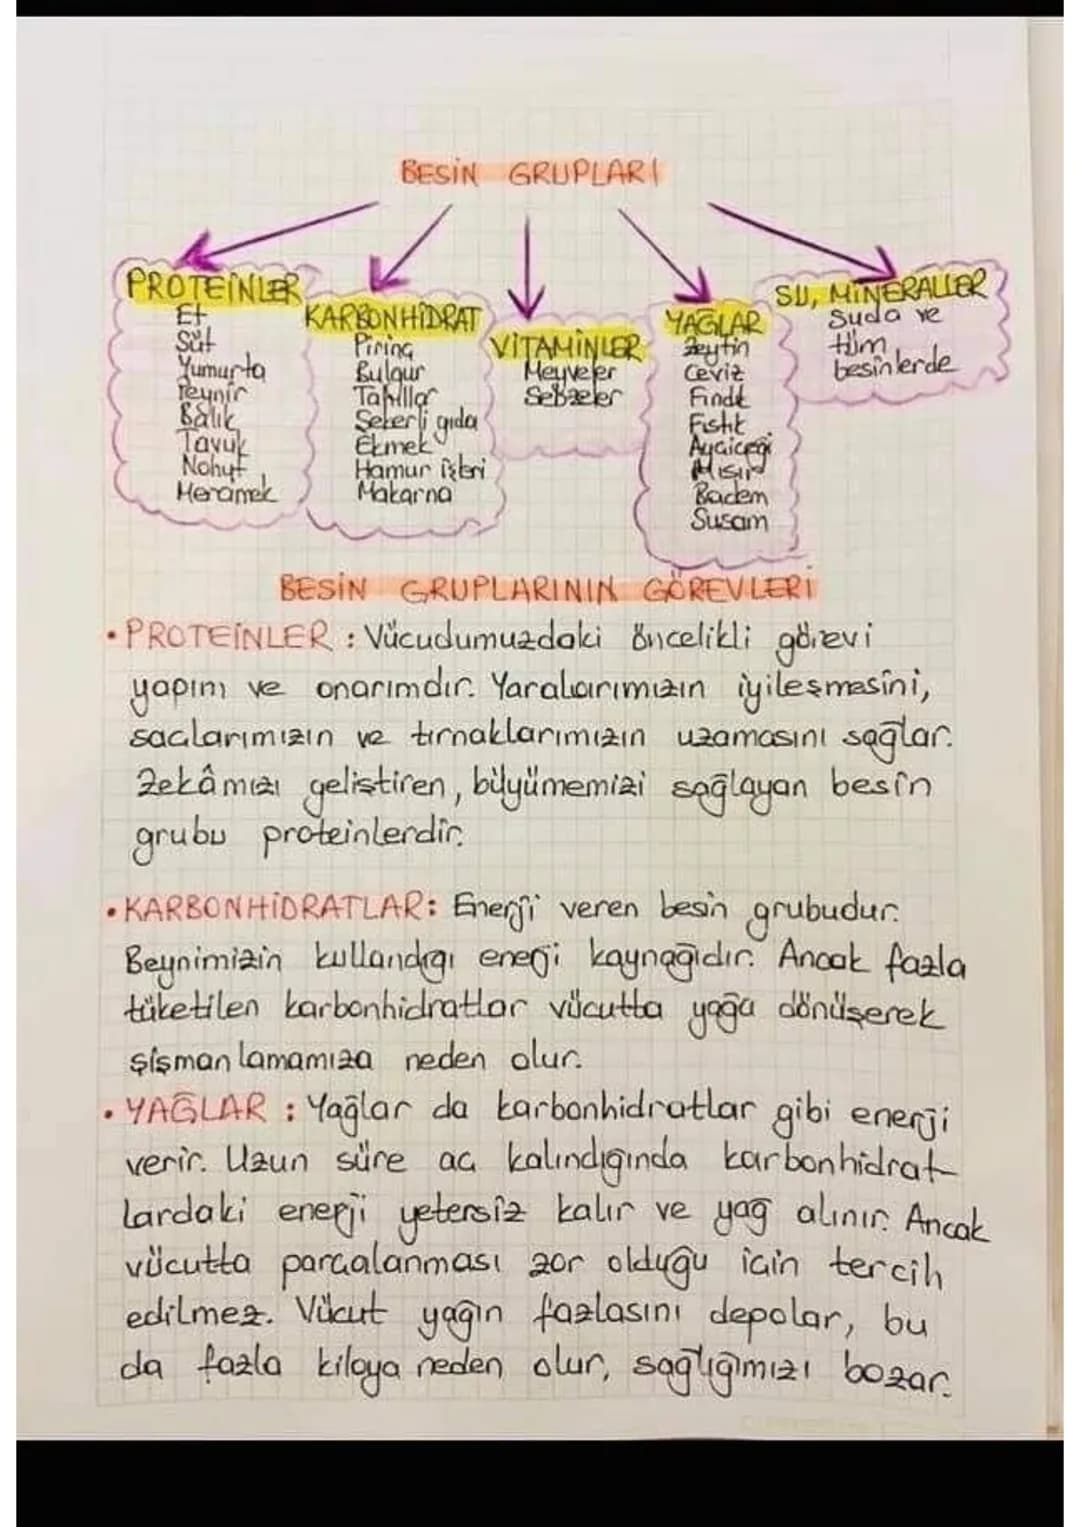 BESİN GRUPLARI
PROTEİNLER
Et
Süt
Yumurta
Peynir
Balık
Tavuk
Nohut
Mercimek
KARBONHİDRAT
Pirinç
Bulgur
Tahıllar
Şekerli gıda
Ekmek
Hamur işleri
Makarna
VİTAMİNLER
Meyveler
Sebzeler
YAĞLAR
Zeytin
Ceviz
Fındık
Fıstık
Ayçiçeği
Mısır
Badem
Susam
SU, MİNERALLER
Suda ve
tüm
besinlerde
BESİN GRUPLARININ GÖREVLERİ
• PROTEİNLER : Vücudumuzdaki öncelikli görevi
yapım ve onarımdır. Yaralarımızın iyileşmesini,
saçlarımızın ve tırnaklarımızın uzamasını sağlar.
Zekâmızı geliştiren, büyümemizi sağlayan besin
grubu proteinlerdir.
• KARBONHİDRATLAR: Enerji veren besin grubudur.
Beynimizin kullandığı enerji kaynağıdır. Ancak fazla
tüketilen karbonhidratlar vücutta yağa dönüşerek
şişmanlamamıza neden olur.
• YAĞLAR : Yağlar da karbonhidratlar gibi enerji
verir. Uzun süre aç kalındığında karbonhidrat
lardaki enerji yetersiz kalır ve yağ alınır. Ancak
vücutta parçalanması zor olduğu için tercih
edilmez. Vücut yağın fazlasını depolar, bu
da fazla kiloya neden olur, sağlığımızı bozar.